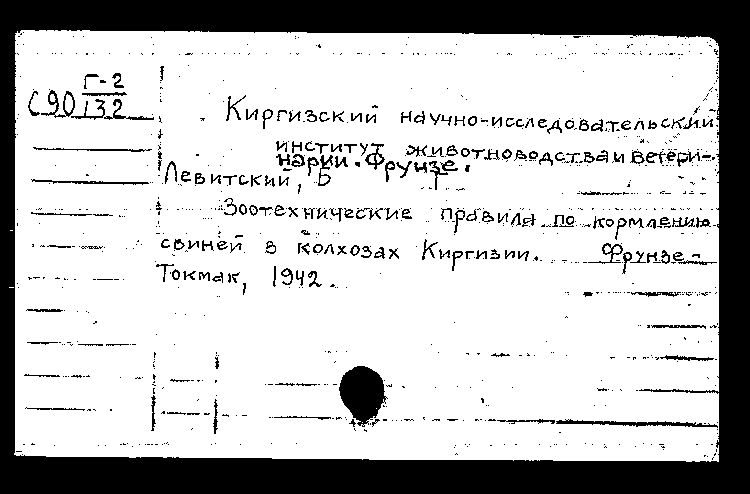 Г-2
С90 132
Киргизский научно-исследовательский
институт животноводства и ветери-
нарии. Фрунзе.
Левитский, Б
Зоотехнические правила по кормлению
свиней в колхозах Киргизии. Фрунзе -
Токмак, 1942.